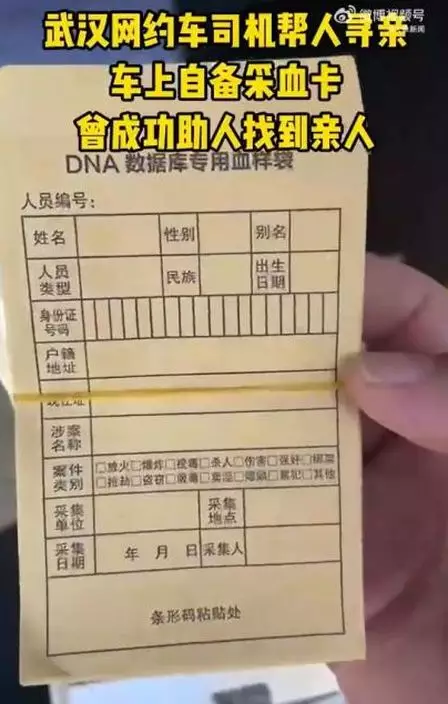 微博视频号
新闻
武汉网约车司机帮人寻亲
车上自备采血卡
曾成功助人找到亲人
DNA 数据库专用血样袋
人员编号:
姓名 性别 别名
人员类型 民族 出生日期
身份证号码
户籍地址
现住址
涉案名称
案件类别 □放火□爆炸□投毒□杀人□伤害□强奸□绑架
□抢劫□盗窃□吸毒□卖淫□嫖娼□累犯□其他
采集单位 采集地点
采集日期 年 月 日 采集人
条形码粘贴处